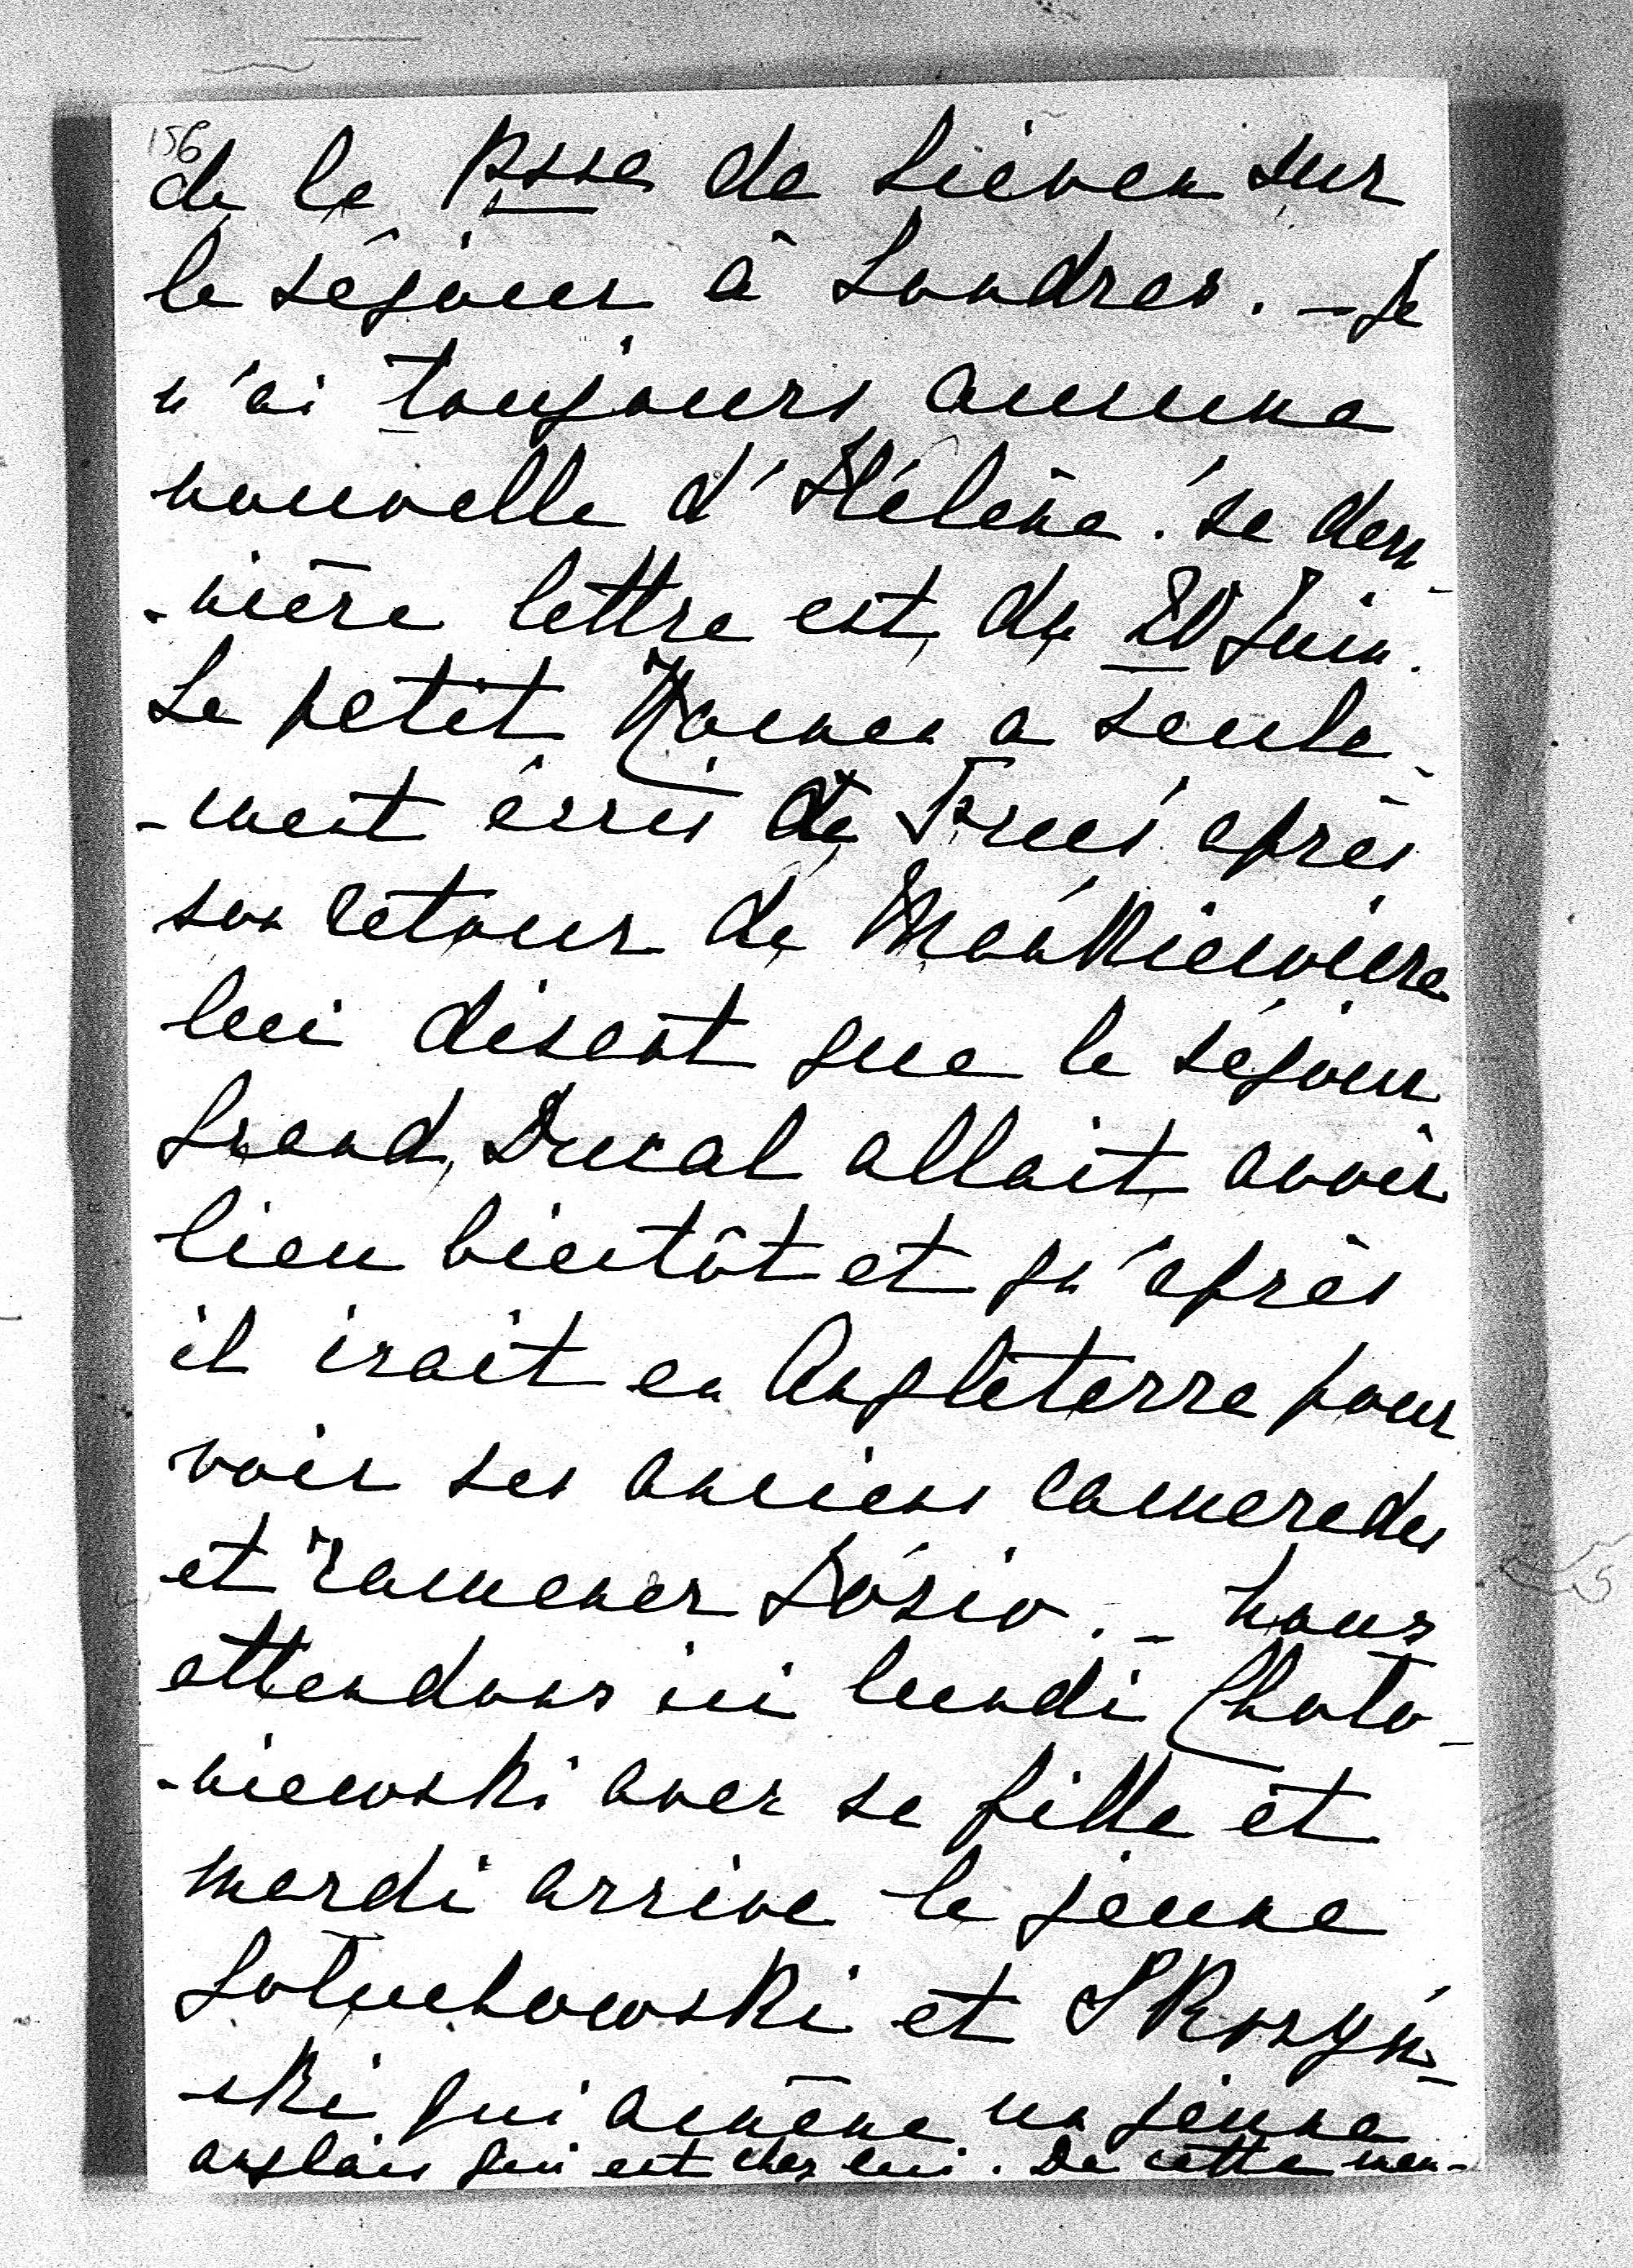 156
de la Psse de Lieven sur
le séjour à Londres. – Je
n'ai toujours aucune
nouvelle d'Hélène. Sa der-
-nière lettre est du 20 Juin.
Le petit a seule-
-ment écrit de après
son retour de
lui disant que le séjour
Grand Ducal allait avoir
lieu bientôt et qu'après
il irait en Angleterre pour
voir ses anciens camarades
et ramener Józio. – Nous
attendons ici lundi Choło-
-niewski avec sa fille et
mardi arrive le jeune
Gołuchowski et Skrzyń-
-ski qui amène un jeune
anglais qui est chez lui. De cette man-